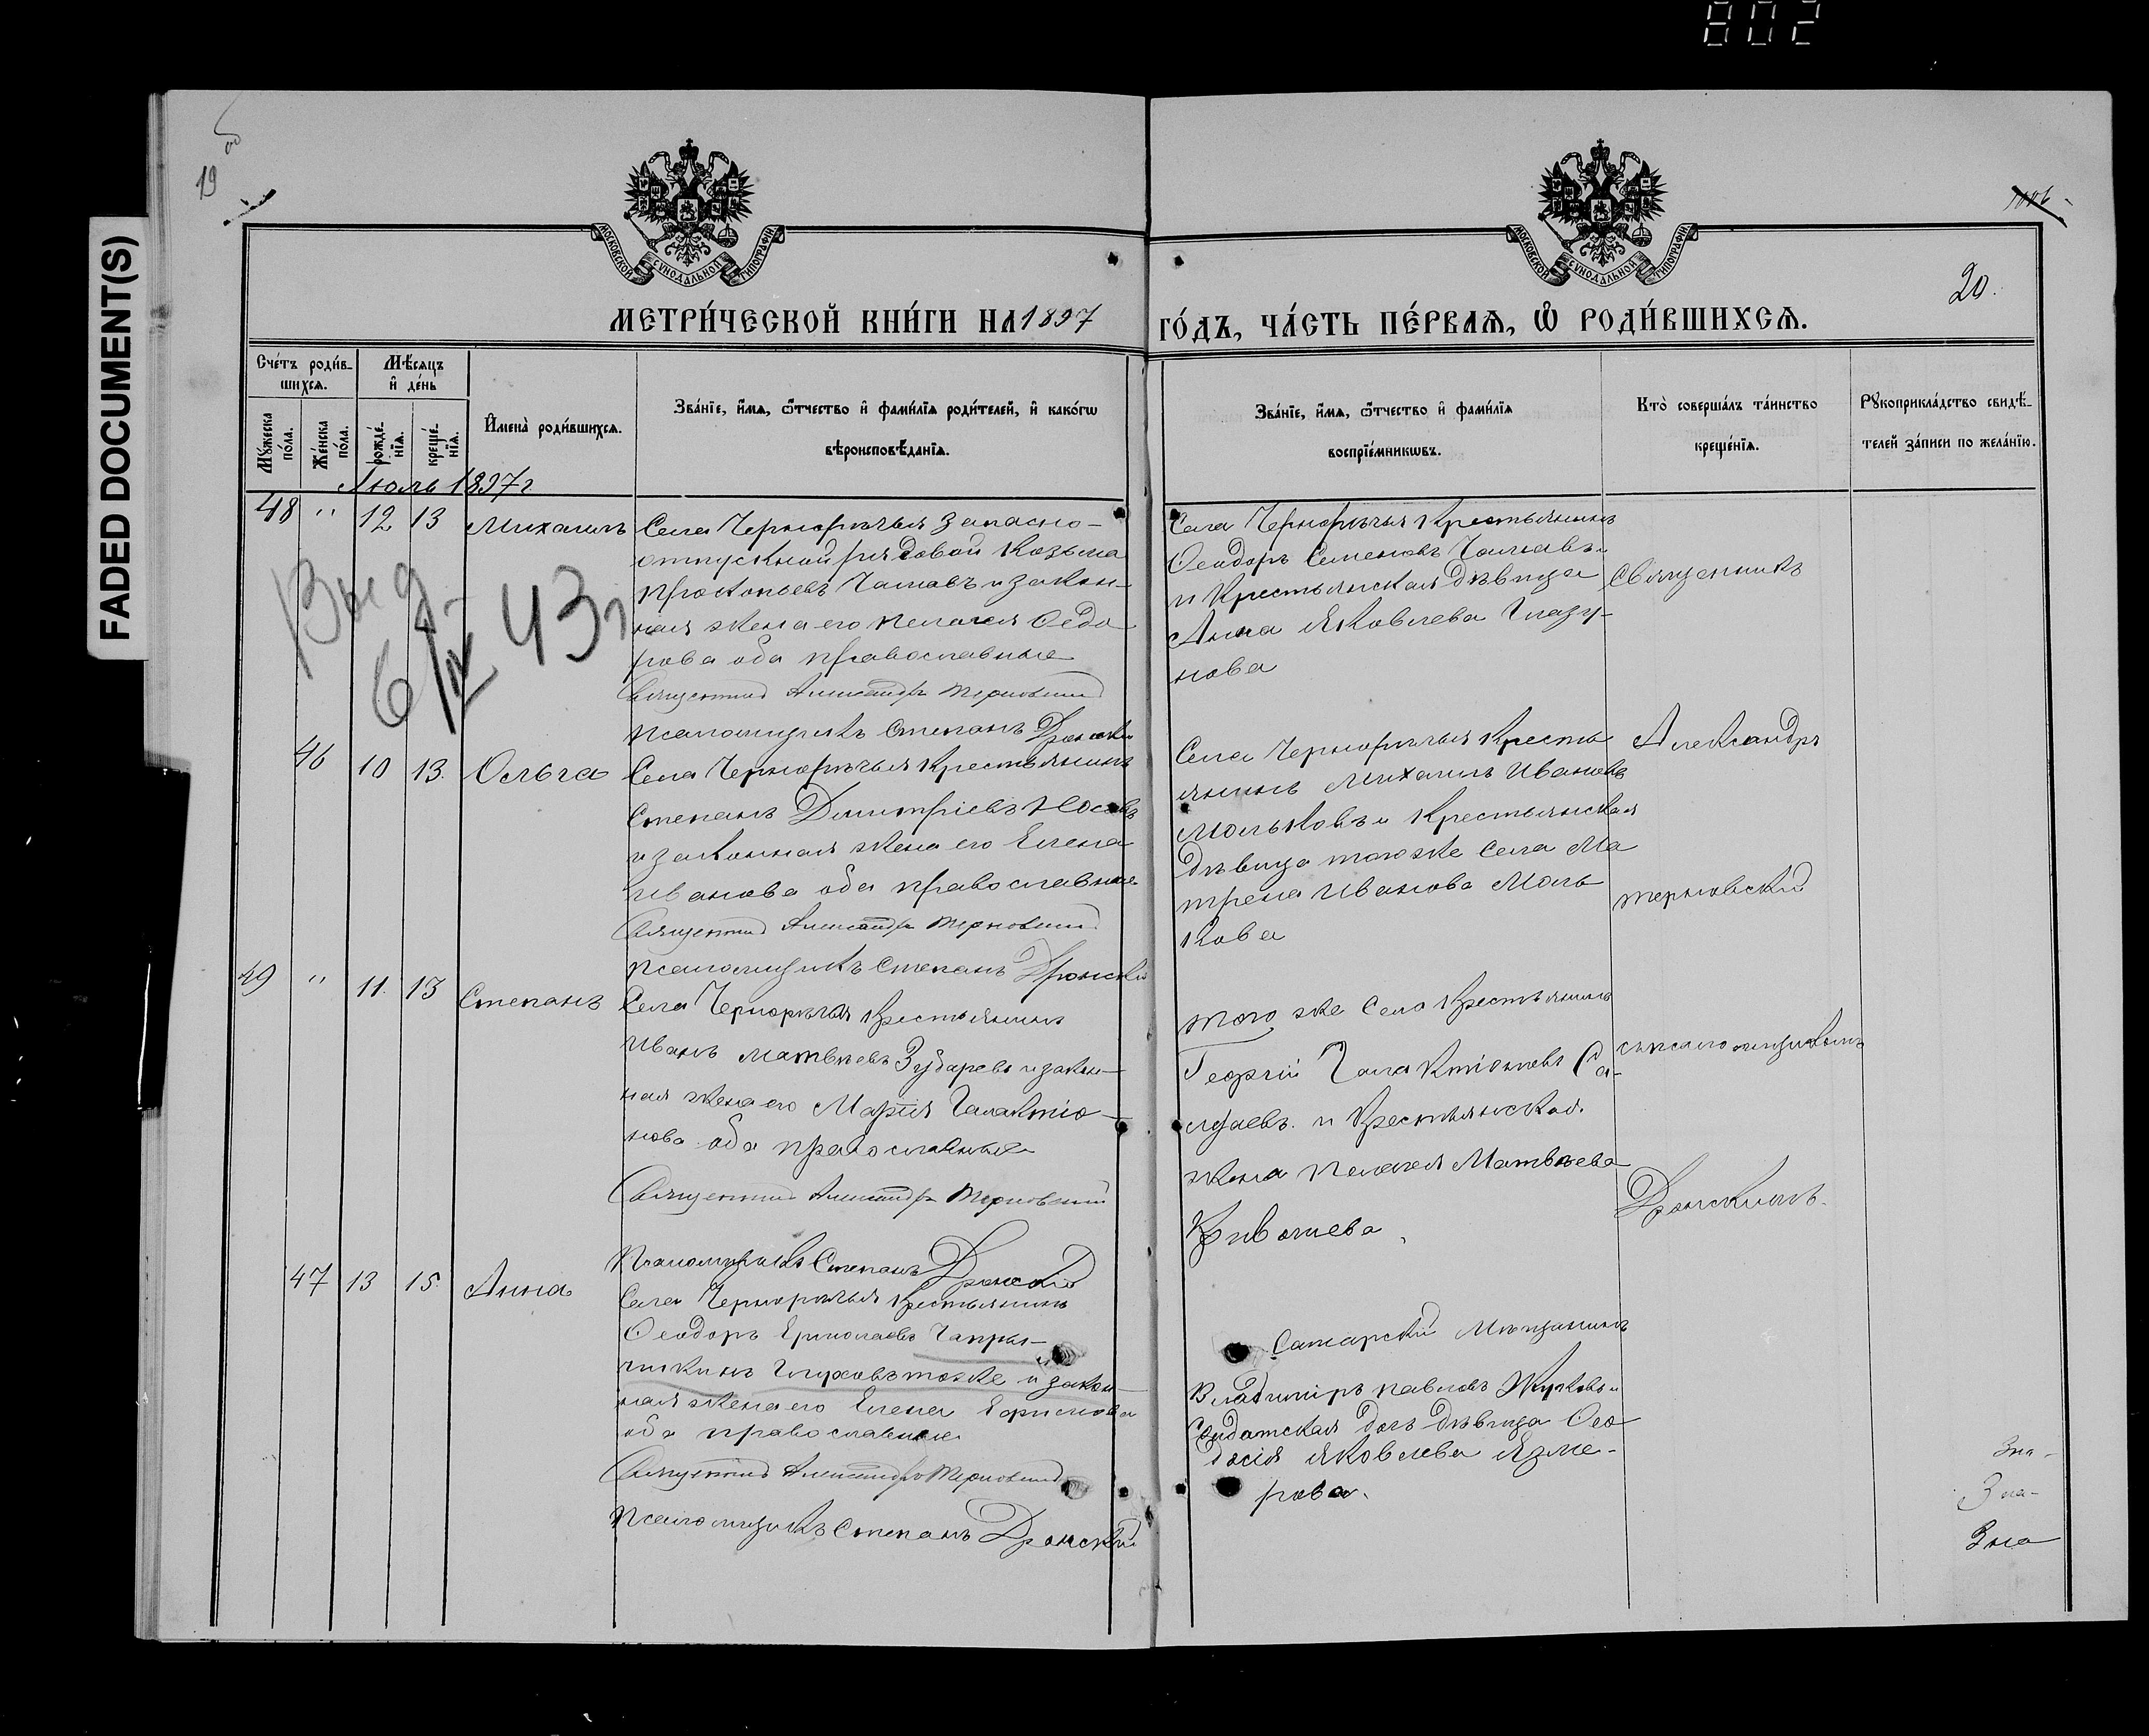 802
FADED DOCUMENT(S)
19 об
20.
МОСКОВСКОЙ СѴНОДАЛЬНОЙ ТИПОГРАФІИ
МОСКОВСКОЙ СѴНОДАЛЬНОЙ ТИПОГРАФІИ
МЕТРИ́ЧЕСКОЙ КНИ́ГИ НА 1897 ГО́ДЪ, ЧА́СТЬ ПЕ́РВАЯ, Ѡ҆ РОДИ́ВШИХСЯ.
Сче́тъ роди́в-
шихся.
Мѣ́сяцъ
и҆ де́нь
Мꙋ́жеска
по́ла.
Же́нска
по́ла.
рожде́-
нїя.
креще́-
нїя.
И҆мена̀ роди́вшихся.
Зва́нїе, и҆́мя, ѻ҆́тчество и҆ фами́лїя роди́телей, и҆ како́гѡ
вѣроисповѣ́данїя.
Зва́нїе, и҆́мя, ѻ҆́тчество и҆ фами́лїя
воспрїе́мникѡвъ.
Кто̀ соверша́лъ та́инство
креще́нїя.
Рꙋкоприкла́дство свидѣ́-
телей за́писи по жела́нїю.
Июль 1897 г
48 " 12 13 Михаилъ
Села Чернорѣчья запасно-
отпускной рядовой Козьма
Прокопьевъ Чашавъ и закон-
ная жена его Пелагея Ѳедо
рова оба православные
Священникъ Александръ Терновский
Псаломщикъ Степанъ Дронский
Села Чернорѣчья Крестьянинъ
Ѳеодоръ Семеновъ и
и Крестьянская дѣвица
Анна Яковлева Глазу-
нова
Священникъ
Выд
6/IX 43 г
46 10 13. Ольга
Села Чернорѣчья Крестьянинъ
Степанъ Димитріевъ Носовъ
и законная жена его Елена
Иванова оба православные
Священникъ Александръ Терновский
Псаломщикъ Степанъ Дронский
Села Чернорѣчья Кресть
янинъ Михаилъ Ивановъ
Мольковъ и Крестьянская
дѣвица того же села Ма
трена Иванова Моль
кова
Александръ
Терновский
49 " 11. 13 Степанъ
Села Чернорѣчья Крестьянинъ
Иванъ Матвѣевъ Зубаревъ и закон-
ная жена его Марія Галактіо-
нова оба православные
Священникъ Александръ Терновский
Псаломщикъ Степанъ Дронский
того же села Крестьянинъ
Георгій Галактіоновъ
и Крестьянская
жена Пелагея Матвѣева
съ псаломщикомъ
Дронскимъ.
47 13 15. Анна
Села Чернорѣчья Крестьянинъ
Ѳеодоръ Ермолаевъ Чапры-
Глуховъ тоже и закон-
ная жена его Елена
оба православные
Священникъ Александръ Терновский
Псаломщикъ Степанъ Дронский
Самарский Мѣщанинъ
Владимиръ Павловъ Жуковъ и
Солдатская дочь дѣвица Ѳео
досія Яковлева Язме-
рова.
Зна-
Зна-
Зна